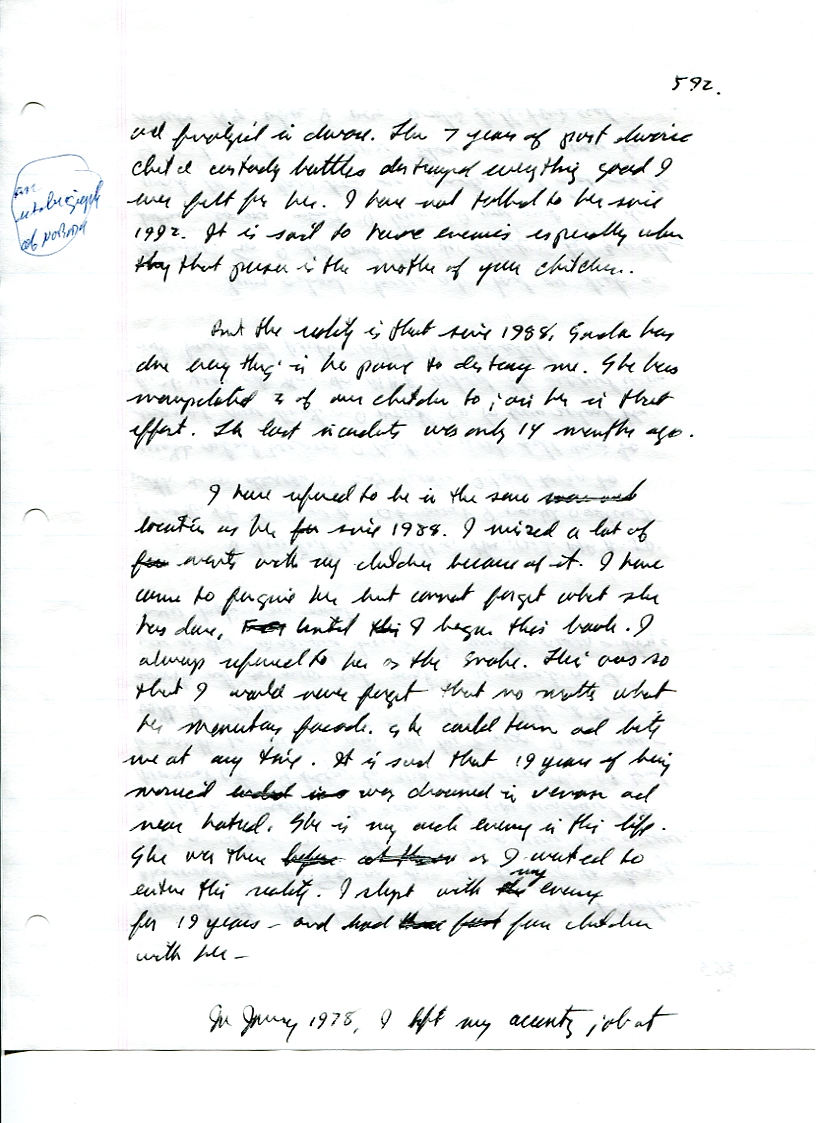 592.
an
autobiography
of
and finalized in divorce. The 7 years of post divorce
child custody battles destroyed everything good I
ever felt for her. I have not talked to her since
1992. It is sad to have enemies especially when
that person is the mother of your children.
But the reality is that since 1988, has
done everything in her power to destroy me. She has
manipulated 3 of our children to join her in that
effort. The last incident was only 14 months ago.
I have refused to be in the same
location as her since 1988. I missed a lot of
events with my children because of it. I have
come to forgive her but cannot forget what she
has done, Until I began this book. I
always referred to her as the Snake. This was so
that I would never forget that no matter what
her momentary facade. she could turn and bite
me at any time. It is sad that 19 years of being
married was drowned in venom and
near hatred. She is my arch enemy in this life.
She was there as I wanted to
enter this reality. I slept with my enemy
for 19 years - and had four children
with her -
In January 1978, I left my accounting job at